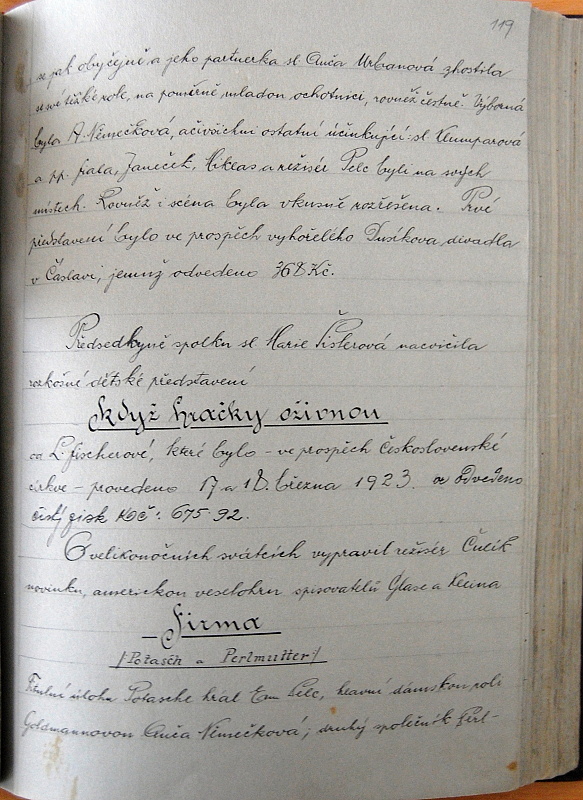 119
se jak obyčejně a jeho partnerka sl. Anča Urbanová zhostila
se své těžké role, na poměrně mladou ochotnici, rovněž čestně. Výborná
byla A. Němečková, a všichni ostatní účinkující: sl. Klumparová
a pp. Fiala, Janeček, Miklas a režisér Pelc byli na svých
místech. Rovněž i scéna byla vkusně rozřešena. Prvé
představení bylo ve prospěch vyhořelého Dusíkova divadla
v Čáslavi, jemuž odvedeno 768 Kč.
Předsedkyně spolku sl. Marie Šislerová nacvičila
rozkošné dětské představení
Když hračky oživnou
od L. Fischerové, které bylo - ve prospěch Československé
církve - provedeno 17 a 18. března 1923. a odvedeno
čistý zisk Kč: 675.92.
O velikonočních svátcích vypravil režisér Čulík
novinku, americkou veselohru spisovatelů Glase a Kleina
- Firma
/Potasch a Perlmutter/
Titulní úlohu Potasche hrál Em. Pelc, hlavní dámskou roli
Goldmannovou Anča Němečková; druhý společník Perl-